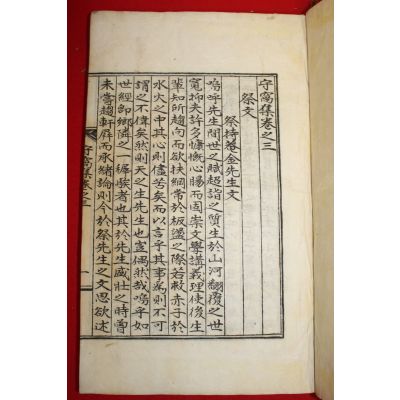 守窩集卷之三
祭文
祭持菴金先生文
嗚呼先生間世之賦超詣之質生於山河翻覆之世
寃抑夫許多慷慨心腸而固崇文學講義理使後生
輩知所趨向而欲扶綱常於板蕩之際若救赤子於
水火之中其心則儘苦矣而以言乎其事爲則不可
謂之不偉矣然則天之生先生也豈偶然哉嗚呼如
世經卽鄕隣之一穉騃者也其於先生盛壯之時曾
未嘗趨軒屛而承緖論則今於祭先生之文思欲述
守窩集卷之三
一